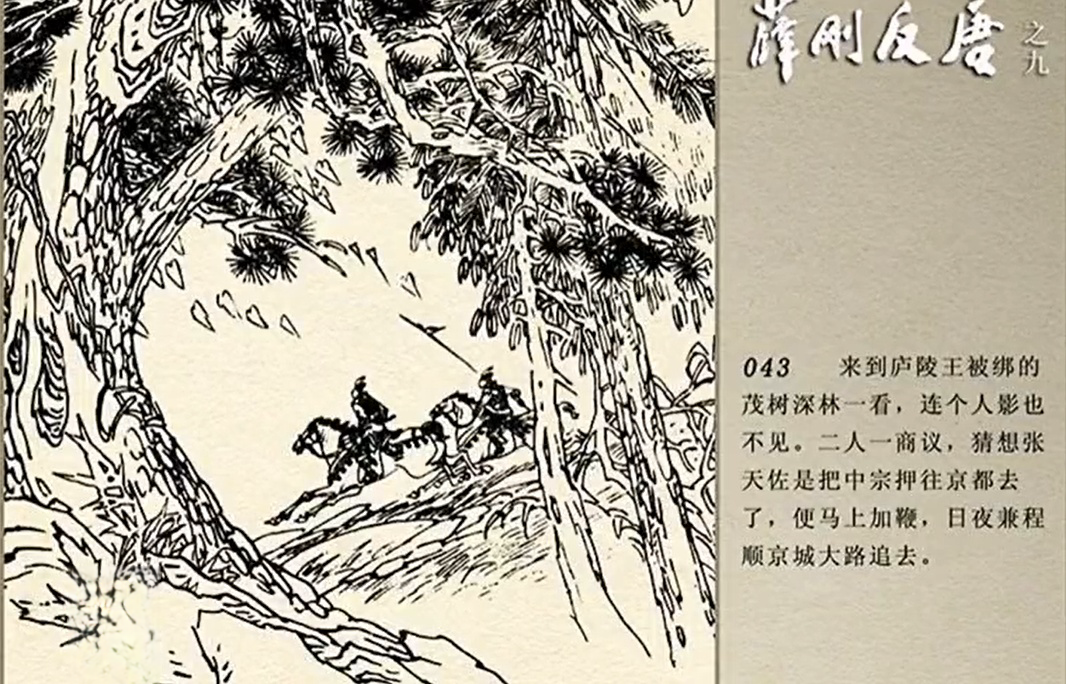 薛刚反唐
之九
043 来到庐陵王被绑的
茂树深林一看，连个人影也
不见。二人一商议，猜想张
天佐是把中宗押往京都去
了，便马上加鞭，日夜兼程
顺京城大路追去。